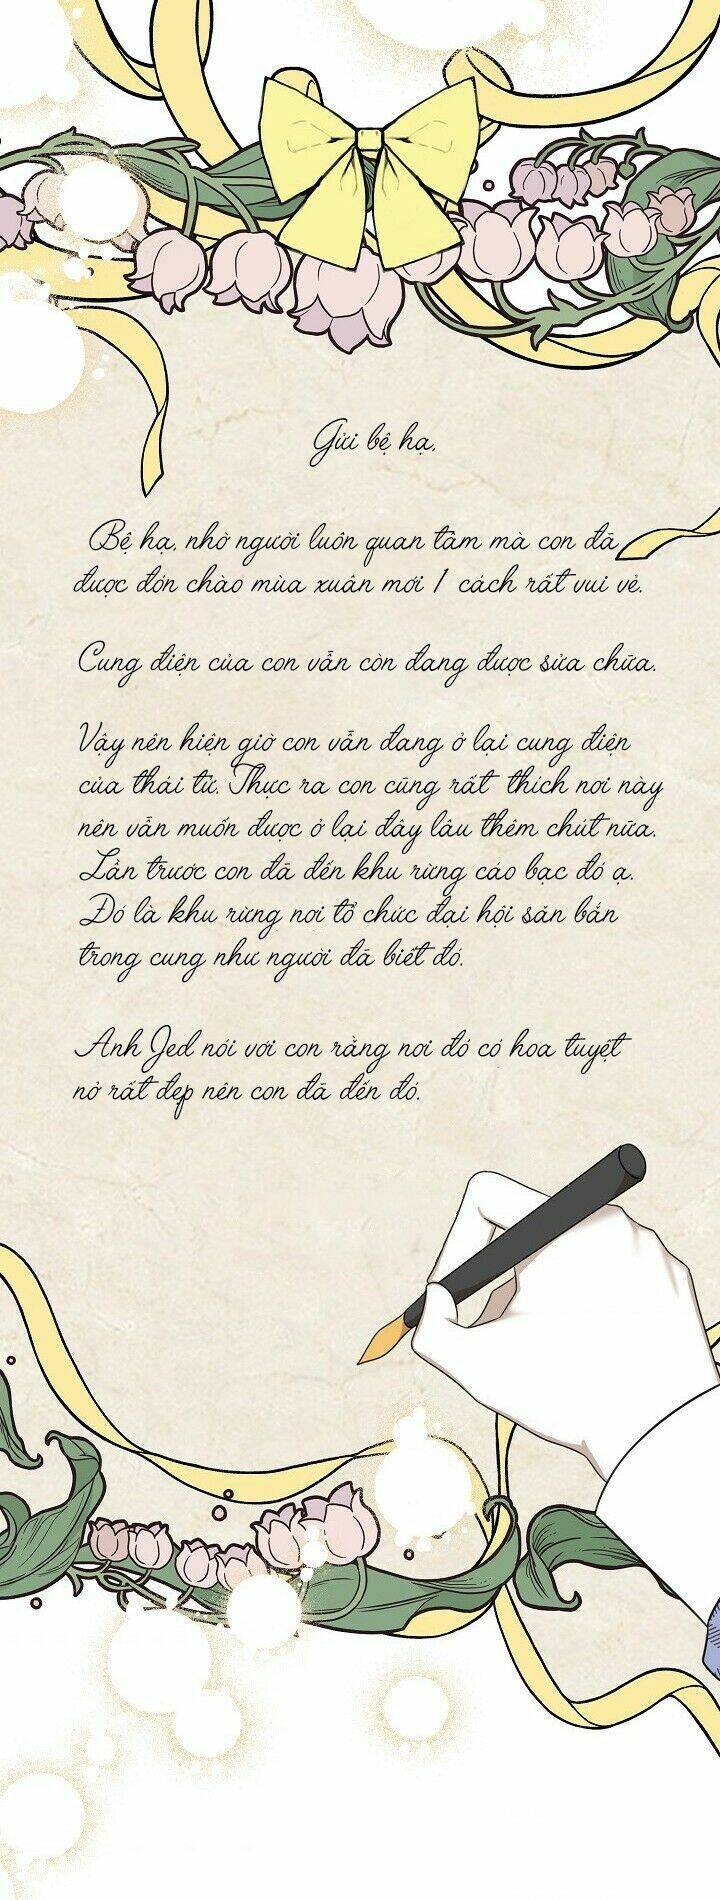 Gửi bệ hạ,
Bệ hạ, nhờ người luôn quan tâm mà con đã
được đón chào mùa xuân mới 1 cách rất vui vẻ.
Cung điện của con vẫn còn đang được sửa chữa.
Vậy nên hiện giờ con vẫn đang ở lại cung điện
của thái tử. Thực ra con cũng rất thích nơi này
nên vẫn muốn được ở lại đây lâu thêm chút nữa.
Lần trước con đã đến khu rừng cáo bạc đó ạ.
Đó là khu rừng nơi tổ chức đại hội săn bắn
trong cung như người đã biết đó.
Anh Jed nói với con rằng nơi đó có hoa tuyệt
nở rất đẹp nên con đã đến đó.